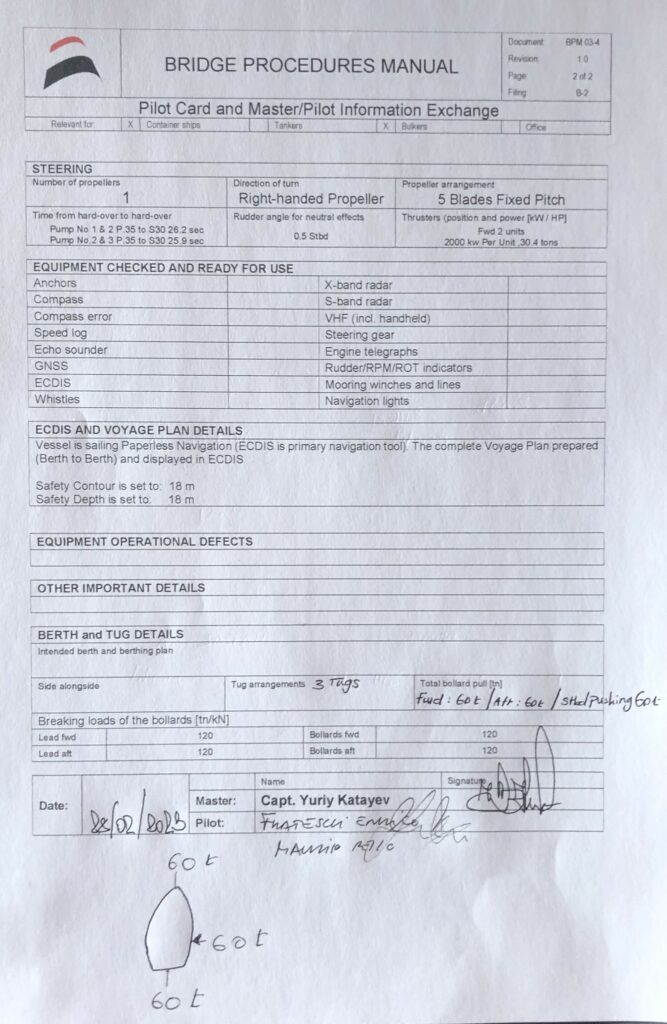 BRIDGE PROCEDURES MANUAL
Document: BPM 03-4
Revision: 1.0
Page: 2 of 2
Filing: B-2
Pilot Card and Master/Pilot Information Exchange
Relevant for: X Container ships Tankers X Bulkers Office
STEERING
Number of propellers Direction of turn Propeller arrangement
1 Right-handed Propeller 5 Blades Fixed Pitch
Time from hard-over to hard-over Rudder angle for neutral effects Thrusters (position and power [kW / HP]
Pump No 1 & 2 P.35 to S30 26.2 sec 0.5 Stbd Fwd 2 units
Pump No.2 & 3 P.35 to S30 25.9 sec 2000 kw Per Unit ,30.4 tons
EQUIPMENT CHECKED AND READY FOR USE
Anchors X-band radar
Compass S-band radar
Compass error VHF (incl. handheld)
Speed log Steering gear
Echo sounder Engine telegraphs
GNSS Rudder/RPM/ROT indicators
ECDIS Mooring winches and lines
Whistles Navigation lights
ECDIS AND VOYAGE PLAN DETAILS
Vessel is sailing Paperless Navigation (ECDIS is primary navigation tool). The complete Voyage Plan prepared
(Berth to Berth) and displayed in ECDIS
Safety Contour is set to: 18 m
Safety Depth is set to: 18 m
EQUIPMENT OPERATIONAL DEFECTS
OTHER IMPORTANT DETAILS
BERTH and TUG DETAILS
Intended berth and berthing plan
Side alongside Tug arrangements 3 Tugs Total bollard pull [tn]
Fwd : 60t / Aft : 60t / Stbd pushing 60t
Breaking loads of the bollards [tn/kN]
Lead fwd 120 Bollards fwd 120
Lead aft 120 Bollards aft 120
Name Signature
Date: 28/02/2023 Master: Capt. Yuriy Katayev
Pilot:
60 t
60 t
60 t